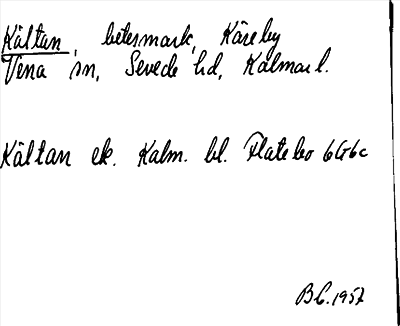 Kältan, betesmark, Käreby
Vena sn, Sevede hd, Kalmar l.
Kältan ek. Kalm. bl. Flatebo 6G6c
B.C. 1957